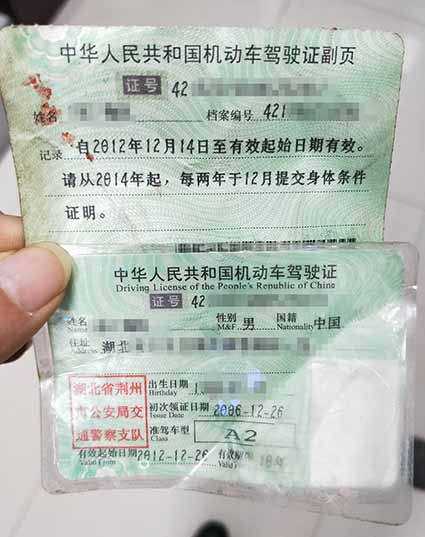 中华人民共和国机动车驾驶证副页
证号 42
姓名 档案编号 421
记录 自2012年12月14日至有效起始日期有效。
请从2014年起，每两年于12月提交身体条件
证明。
中华人民共和国机动车驾驶证
Driving License of the People's Republic of China
证号 42
姓名 性别 男 国籍 中国
Name M&F Nationality
住址 湖北
Address
湖北省荆州
市公安局交
通警察支队
出生日期 1
Birthday
初次领证日期 2006-12-26
Issue Date
准驾车型 A2
Class
有效起始日期 2012-12-26 有效期
Valid From Valid